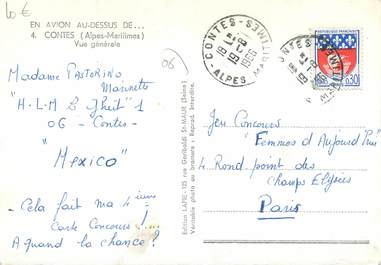 10 €
EN AVION AU-DESSUS DE...
4. CONTES (Alpes-Maritimes)
Vue générale
06
Madame PASTORINO
"H-L-M 1
06 - Contes -
"Mexico"
- Cela fait ma 4 ième
Carte Concours !...
A quand la chance ?
Edition LAPIE - 125 rue Garibaldi St-MAUR (Seine)
Véritable photo au bromure - Reprod. Interdite.
CONTES - ALPES MARITIMES
REPUBLIQUE FRANCAISE
0,30
Jeu Concours
"Femmes d'Aujourd'hui"
4 Rond point des
Champs Elysées
Paris